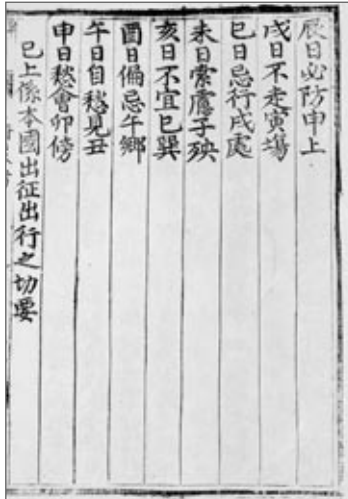 辰日必防申上
戌日不走寅塲
巳日忌行戌處
未日縈䧏子殃
亥日不宜巳巽
酉日偏忌午鄉
午日自愁見丑
申日愁會卯傍
已上係本國出征出行之切要